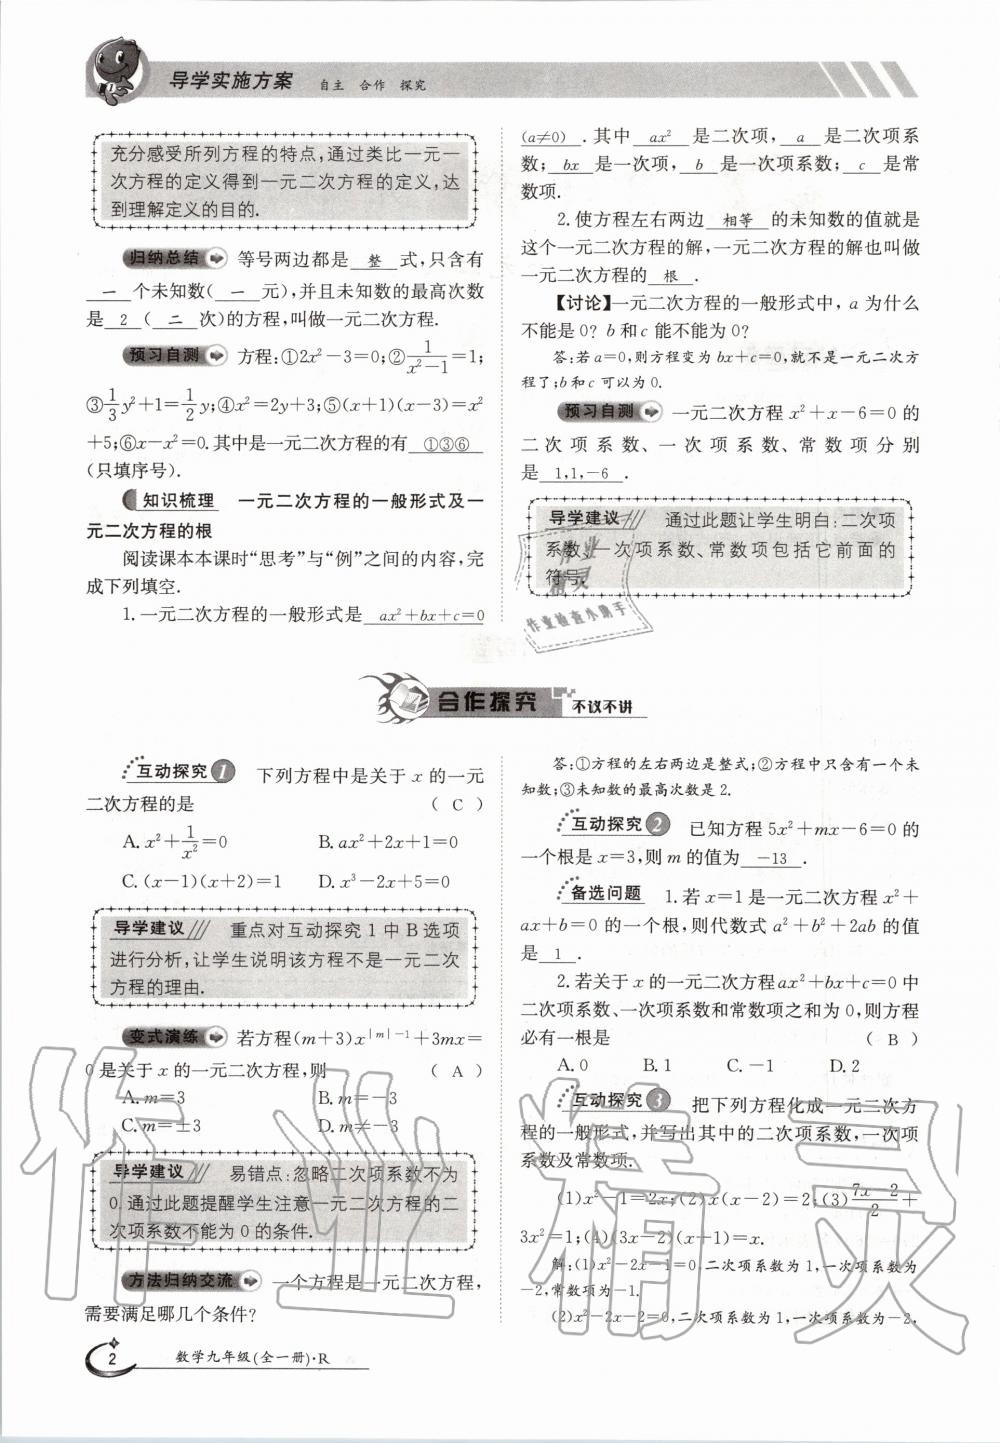 导学实施方案 自主 合作 探究
充分感受所列方程的特点,通过类比一元一
次方程的定义得到一元二次方程的定义,达
到理解定义的目的.
归纳总结 等号两边都是 整 式,只含有
一 个未知数( 一 元),并且未知数的最高次数
是 2 ( 二 次)的方程,叫做一元二次方程.
预习自测 方程:①2x²-3=0;②1/(x²-1)=1;
③1/3y²+1=1/2y;④x²=2y+3;⑤(x+1)(x-3)=x²
+5;⑥x-x²=0.其中是一元二次方程的有 ①③⑥
(只填序号).
知识梳理 一元二次方程的一般形式及一
元二次方程的根
阅读课本本课时“思考”与“例”之间的内容,完
成下列填空.
1.一元二次方程的一般形式是 ax²+bx+c=0
(a≠0) .其中 ax² 是二次项, a 是二次项系
数; bx 是一次项, b 是一次项系数; c 是常
数项.
2.使方程左右两边 相等 的未知数的值就是
这个一元二次方程的解,一元二次方程的解也叫做
一元二次方程的 根 .
【讨论】一元二次方程的一般形式中,a 为什么
不能是0? b 和 c 能不能为0?
答:若a=0,则方程变为bx+c=0,就不是一元二次方
程了;b和c可以为0.
预习自测 一元二次方程 x²+x-6=0 的
二次项系数、一次项系数、常数项分别
是 1,1,-6 .
导学建议 通过此题让学生明白:二次项
系数、一次项系数、常数项包括它前面的
符号.
作业
精灵
作业检查小助手
合作探究 不议不讲
互动探究1 下列方程中是关于 x 的一元
二次方程的是 ( C )
A. x²+1/x²=0 B. ax²+2x+1=0
C. (x-1)(x+2)=1 D. x³-2x+5=0
导学建议 重点对互动探究1中B选项
进行分析,让学生说明该方程不是一元二次
方程的理由.
变式演练 若方程(m+3)x^(|m|-1)+3mx=
0是关于 x 的一元二次方程,则 ( A )
A. m=3 B. m=-3
C. m=±3 D. m≠-3
导学建议 易错点:忽略二次项系数不为
0.通过此题提醒学生注意一元二次方程的二
次项系数不能为0的条件.
方法归纳交流 一个方程是一元二次方程,
需要满足哪几个条件?
答:①方程的左右两边是整式;②方程中只含有一个未
知数;③未知数的最高次数是2.
互动探究2 已知方程 5x²+mx-6=0 的
一个根是 x=3,则 m 的值为 -13 .
备选问题 1.若 x=1 是一元二次方程 x²+
ax+b=0 的一个根,则代数式 a²+b²+2ab 的值
是 1 .
2.若关于 x 的一元二次方程ax²+bx+c=0中
二次项系数、一次项系数和常数项之和为0,则方程
必有一根是 ( B )
A. 0 B. 1 C. -1 D. 2
互动探究3 把下列方程化成一元二次方
程的一般形式,并写出其中的二次项系数,一次项
系数及常数项.
(1)x²-1=2x;(2)x(x-2)=2;(3)(7x-2)/2+
3x²=1;(4)(3x-2)(x+1)=x.
解:(1)x²-2x-1=0,二次项系数为1,一次项系数为
-2,常数项为-1.
(2)x²-2x-2=0,二次项系数为1,一次项系数为-2,
2 数学九年级(全一册)·R
作业精灵